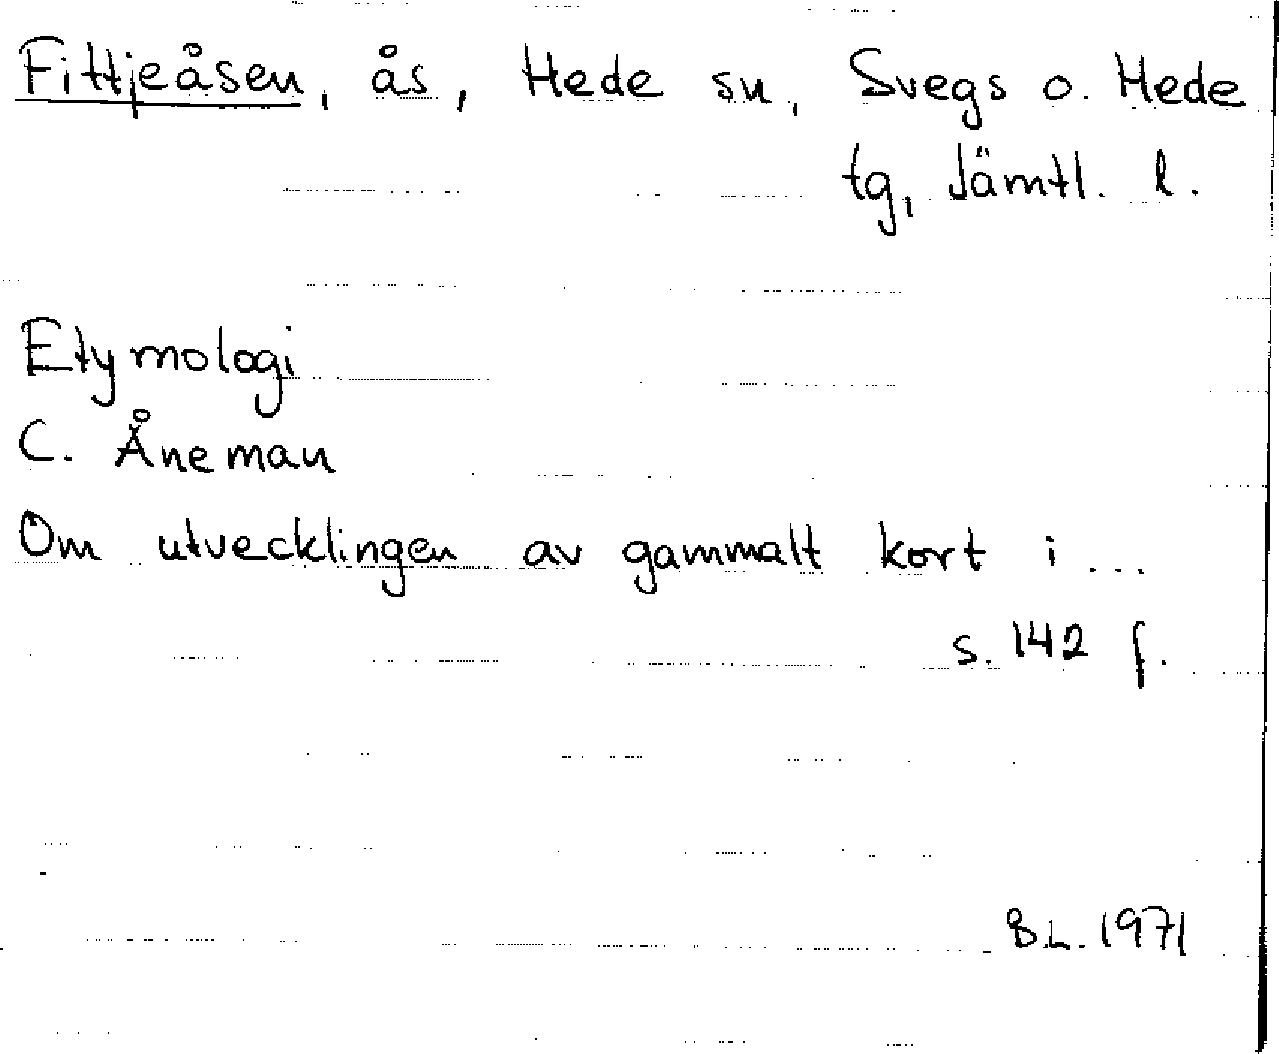 Fittjeåsen, ås, Hede sn, Svegs o. Hede
tg, Jämtl. l.
Etymologi
C. Åneman
Om utvecklingen av gammalt kort i ...
s. 142 f.
B.L. 1971